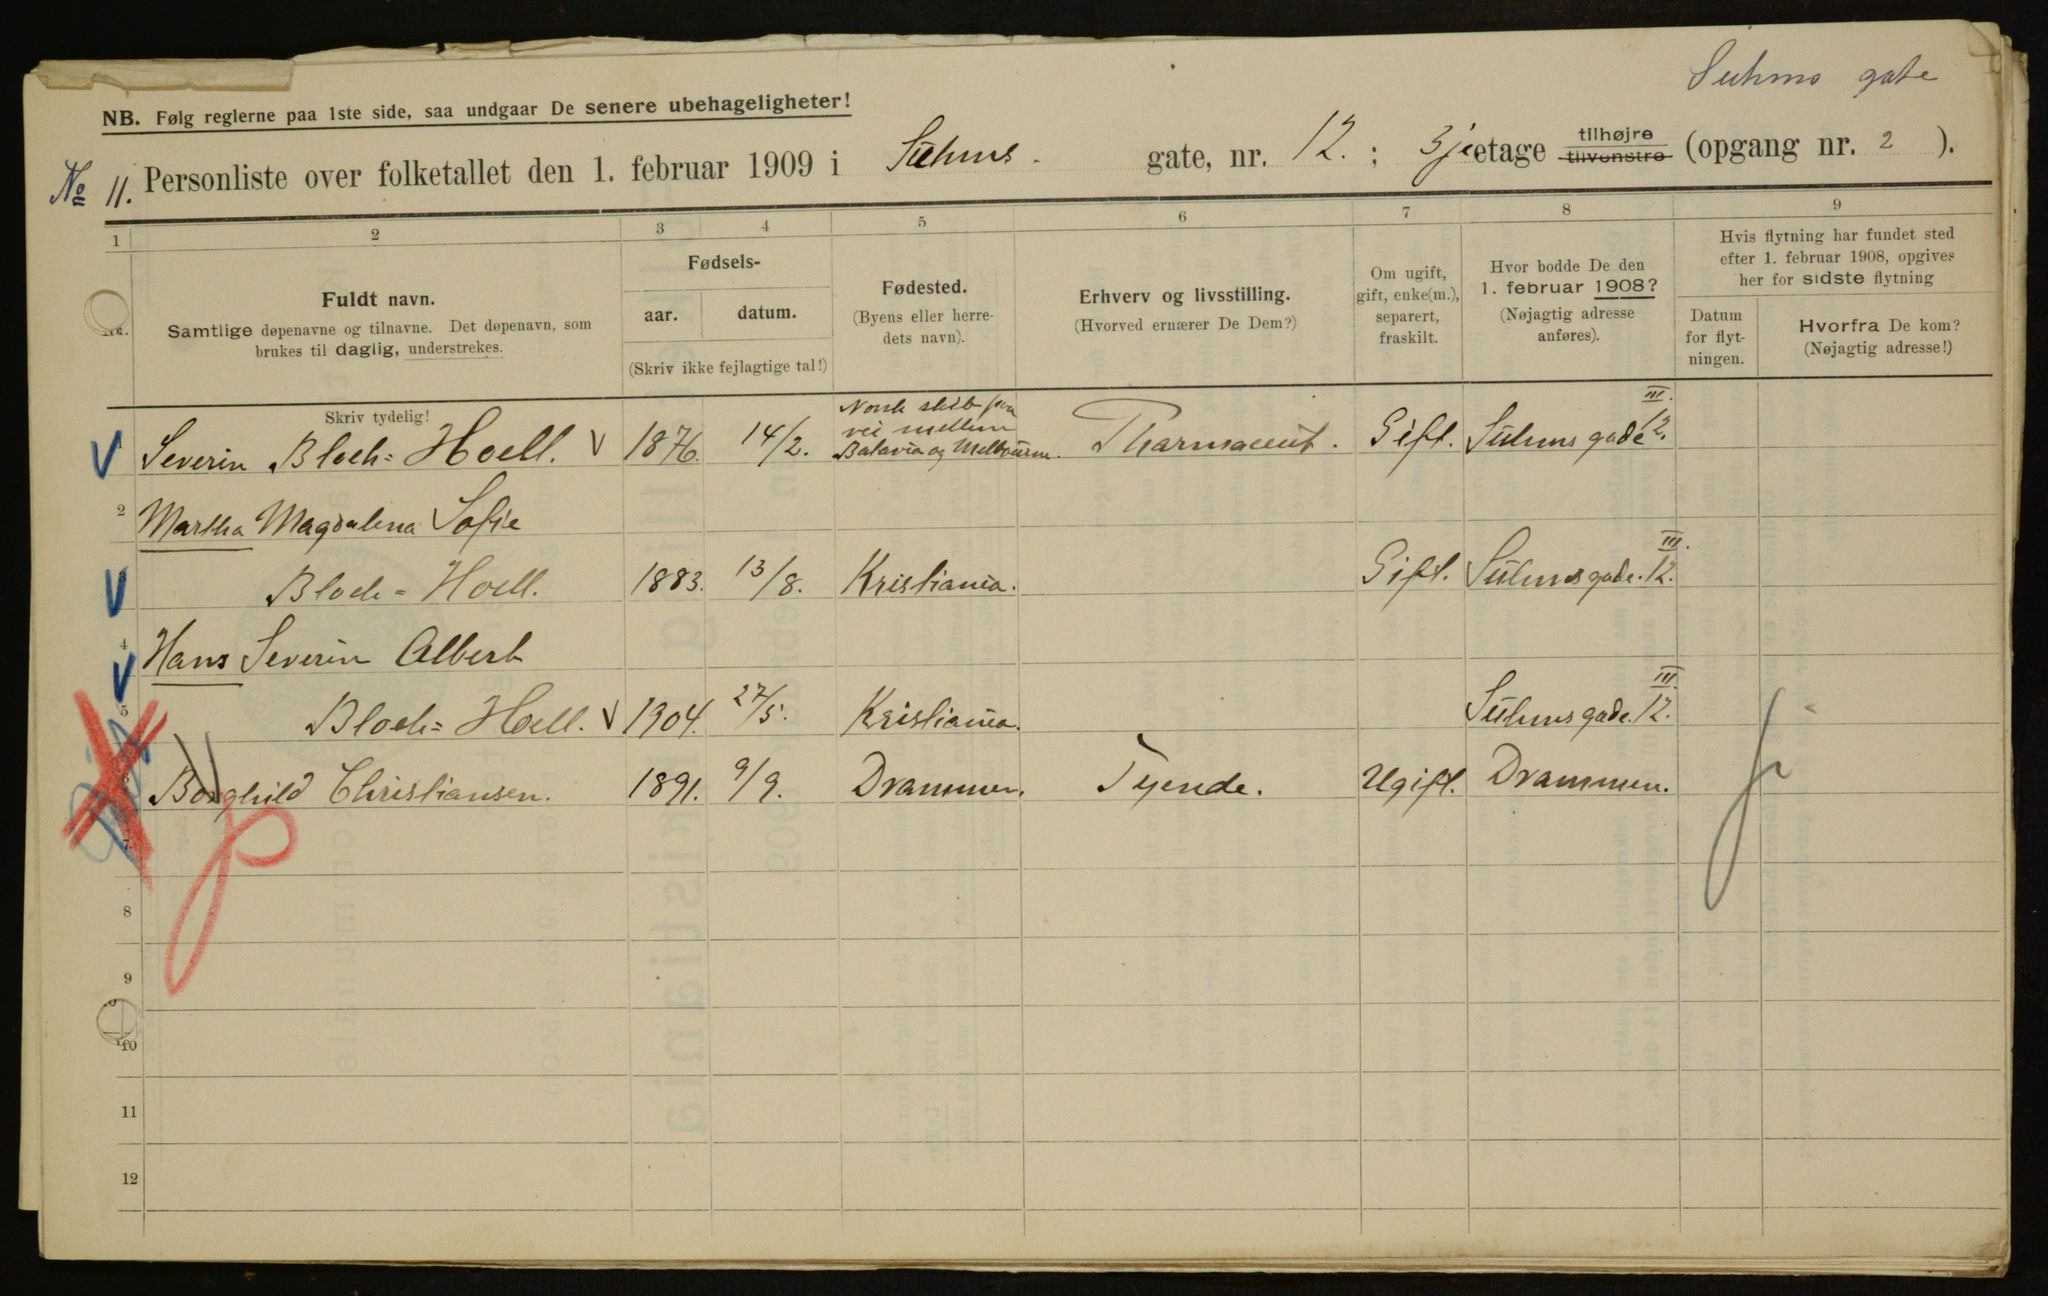 Suhms gate
NB. Følg reglerne paa 1ste side, saa undgaar De senere ubehageligheter!
No 11. Personliste over folketallet den 1. februar 1909 i Suhms. gate, nr. 12. ; 3je etage tilhøjre tilvenstre (opgang nr. 2 ).
1 2 3 4 5 6 7 8 9
Nr.
Fuldt navn.
Samtlige døpenavne og tilnavne. Det døpenavn, som
brukes til daglig, understrekes.
Skriv tydelig!
Fødsels-
aar. datum.
(Skriv ikke fejlagtige tal!)
Fødested.
(Byens eller herre-
dets navn).
Erhverv og livsstilling.
(Hvorved ernærer De Dem?)
Om ugift,
gift, enke(m.),
separert,
fraskilt.
Hvor bodde De den
1. februar 1908?
(Nøjagtig adresse
anføres).
Hvis flytning har fundet sted
efter 1. februar 1908, opgives
her for sidste flytning
Datum
for flyt-
ningen.
Hvorfra De kom?
(Nøjagtig adresse!)
Severin Bloch=Hoell. 1876. 14/2. Norsk skib paa vei mellem Batavia og Melbourne. Pharmaceut. Gift. Suhmsgade 12. III.
2 Martha Magdalena Sofie
Bloch=Hoell. 1883. 13/8. Kristiania. Gift. Suhmsgade. 12. III.
4 Hans Severin Albert
5 Bloch=Hoell. 1904. 27/5. Kristiania. Suhmsgade. 12. III.
Borghild Christiansen. 1891. 9/9. Drammen. Tjende. Ugift. Drammen.
7
8
9
10
11
12